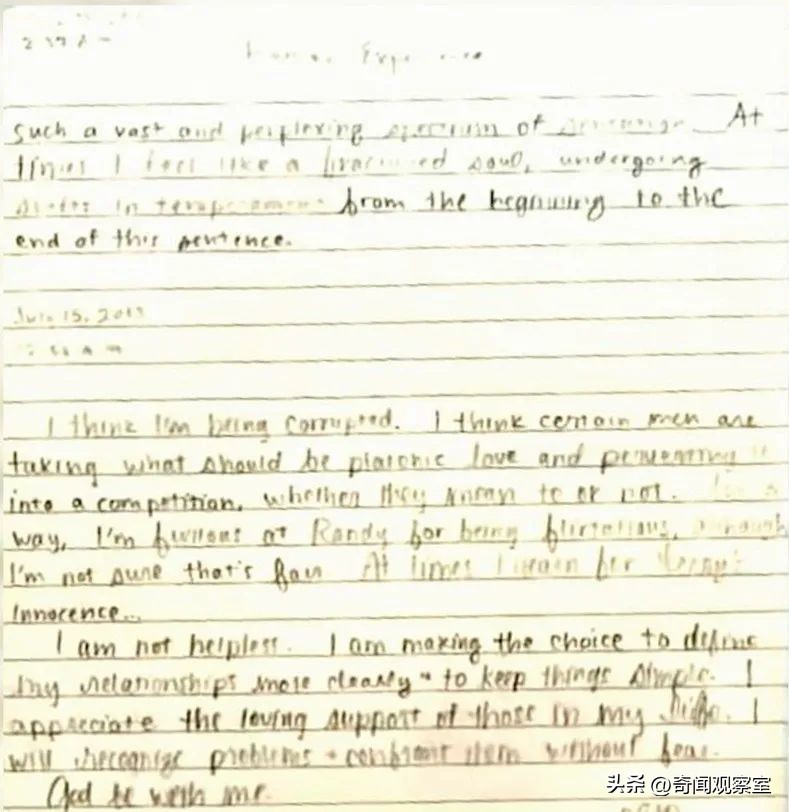 Such a vast and perplexing spectrum of At
times I feel like a fractured soul, undergoing
in from the beginning to the
end of this sentence.
15, 2013
I think I'm being corrupted. I think certain men are
taking what should be platonic love and perverting it
into a competition, whether they mean to or not. In a
way, I'm furious at Randy for being flirtatious, although
I'm not sure that's fair. At times I yearn for
innocence...
I am not helpless. I am making the choice to define
my relationships more clearly + to keep things simple. I
appreciate the loving support of those in my life. I
will recognize problems + confront them without fear.
God be with me.
头条 @奇闻观察室